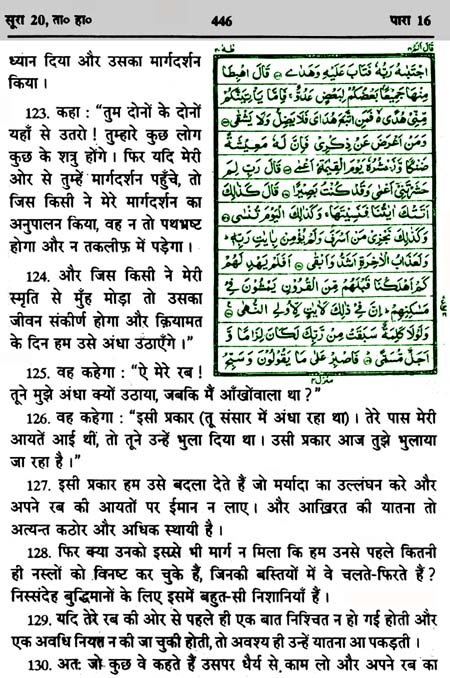 सूरा 20, ता० हा०
446
पारा 16
طٰهٰ ٢٠
قال الم ١٦
ध्यान दिया और उसका मार्गदर्शन
किया।
123. कहा : “तुम दोनों के दोनों
यहाँ से उतरो ! तुम्हारे कुछ लोग
कुछ के शत्रु होंगे। फिर यदि मेरी
ओर से तुम्हें मार्गदर्शन पहुँचे, तो
जिस किसी ने मेरे मार्गदर्शन का
अनुपालन किया, वह न तो पथभ्रष्ट
होगा और न तकलीफ़ में पड़ेगा।
124. और जिस किसी ने मेरी
स्मृति से मुँह मोड़ा तो उसका
जीवन संकीर्ण होगा और क़ियामत
के दिन हम उसे अंधा उठाएँगे।”
اجْتَبٰىهُ رَبُّهٗ فَتَابَ عَلَيْهِ وَهَدٰى قَالَ اهْبِطَا
مِنْهَا جَمِيْعًا بَعْضُكُمْ لِبَعْضٍ عَدُوٌّ فَاِمَّا يَاْتِيَنَّكُمْ
مِّنِّيْ هُدًى فَمَنِ اتَّبَعَ هُدَايَ فَلَا يَضِلُّ وَلَا يَشْقٰى
وَمَنْ اَعْرَضَ عَنْ ذِكْرِيْ فَاِنَّ لَهٗ مَعِيْشَةً
ضَنْكًا وَّنَحْشُرُهٗ يَوْمَ الْقِيٰمَةِ اَعْمٰى قَالَ رَبِّ لِمَ
حَشَرْتَنِيْٓ اَعْمٰى وَقَدْ كُنْتُ بَصِيْرًا قَالَ كَذٰلِكَ
اَتَتْكَ اٰيٰتُنَا فَنَسِيْتَهَا وَكَذٰلِكَ الْيَوْمَ تُنْسٰى
وَكَذٰلِكَ نَجْزِيْ مَنْ اَسْرَفَ وَلَمْ يُؤْمِنْۢ بِاٰيٰتِ رَبِّهٖ
وَلَعَذَابُ الْاٰخِرَةِ اَشَدُّ وَاَبْقٰى اَفَلَمْ يَهْدِ لَهُمْ
كَمْ اَهْلَكْنَا قَبْلَهُمْ مِّنَ الْقُرُوْنِ يَمْشُوْنَ فِيْ
مَسٰكِنِهِمْ اِنَّ فِيْ ذٰلِكَ لَاٰيٰتٍ لِّاُولِي النُّهٰى
وَلَوْلَا كَلِمَةٌ سَبَقَتْ مِنْ رَّبِّكَ لَكَانَ لِزَامًا وَّ
اَجَلٌ مُّسَمًّى فَاصْبِرْ عَلٰى مَا يَقُوْلُوْنَ وَسَبِّحْ
125. वह कहेगा : “ऐ मेरे रब !
तूने मुझे अंधा क्यों उठाया, जबकि मैं आँखोंवाला था ?”
126. वह कहेगा : “इसी प्रकार (तू संसार में अंधा रहा था)। तेरे पास मेरी
आयतें आई थीं, तो तूने उन्हें भुला दिया था। उसी प्रकार आज तुझे भुलाया
जा रहा है।”
127. इसी प्रकार हम उसे बदला देते हैं जो मर्यादा का उल्लंघन करे और
अपने रब की आयतों पर ईमान न लाए। और आख़िरत की यातना तो
अत्यन्त कठोर और अधिक स्थायी है।
128. फिर क्या उनको इससे भी मार्ग न मिला कि हम उनसे पहले कितनी
ही नस्लों को विनष्ट कर चुके हैं, जिनकी बस्तियों में वे चलते-फिरते हैं ?
निस्संदेह बुद्धिमानों के लिए इसमें बहुत-सी निशानियाँ हैं।
129. यदि तेरे रब की ओर से पहले ही एक बात निश्चित न हो गई होती और
एक अवधि नियत न की जा चुकी होती, तो अवश्य ही उन्हें यातना आ पकड़ती।
130. अतः जो कुछ वे कहते हैं उसपर धैर्य से काम लो और अपने रब का